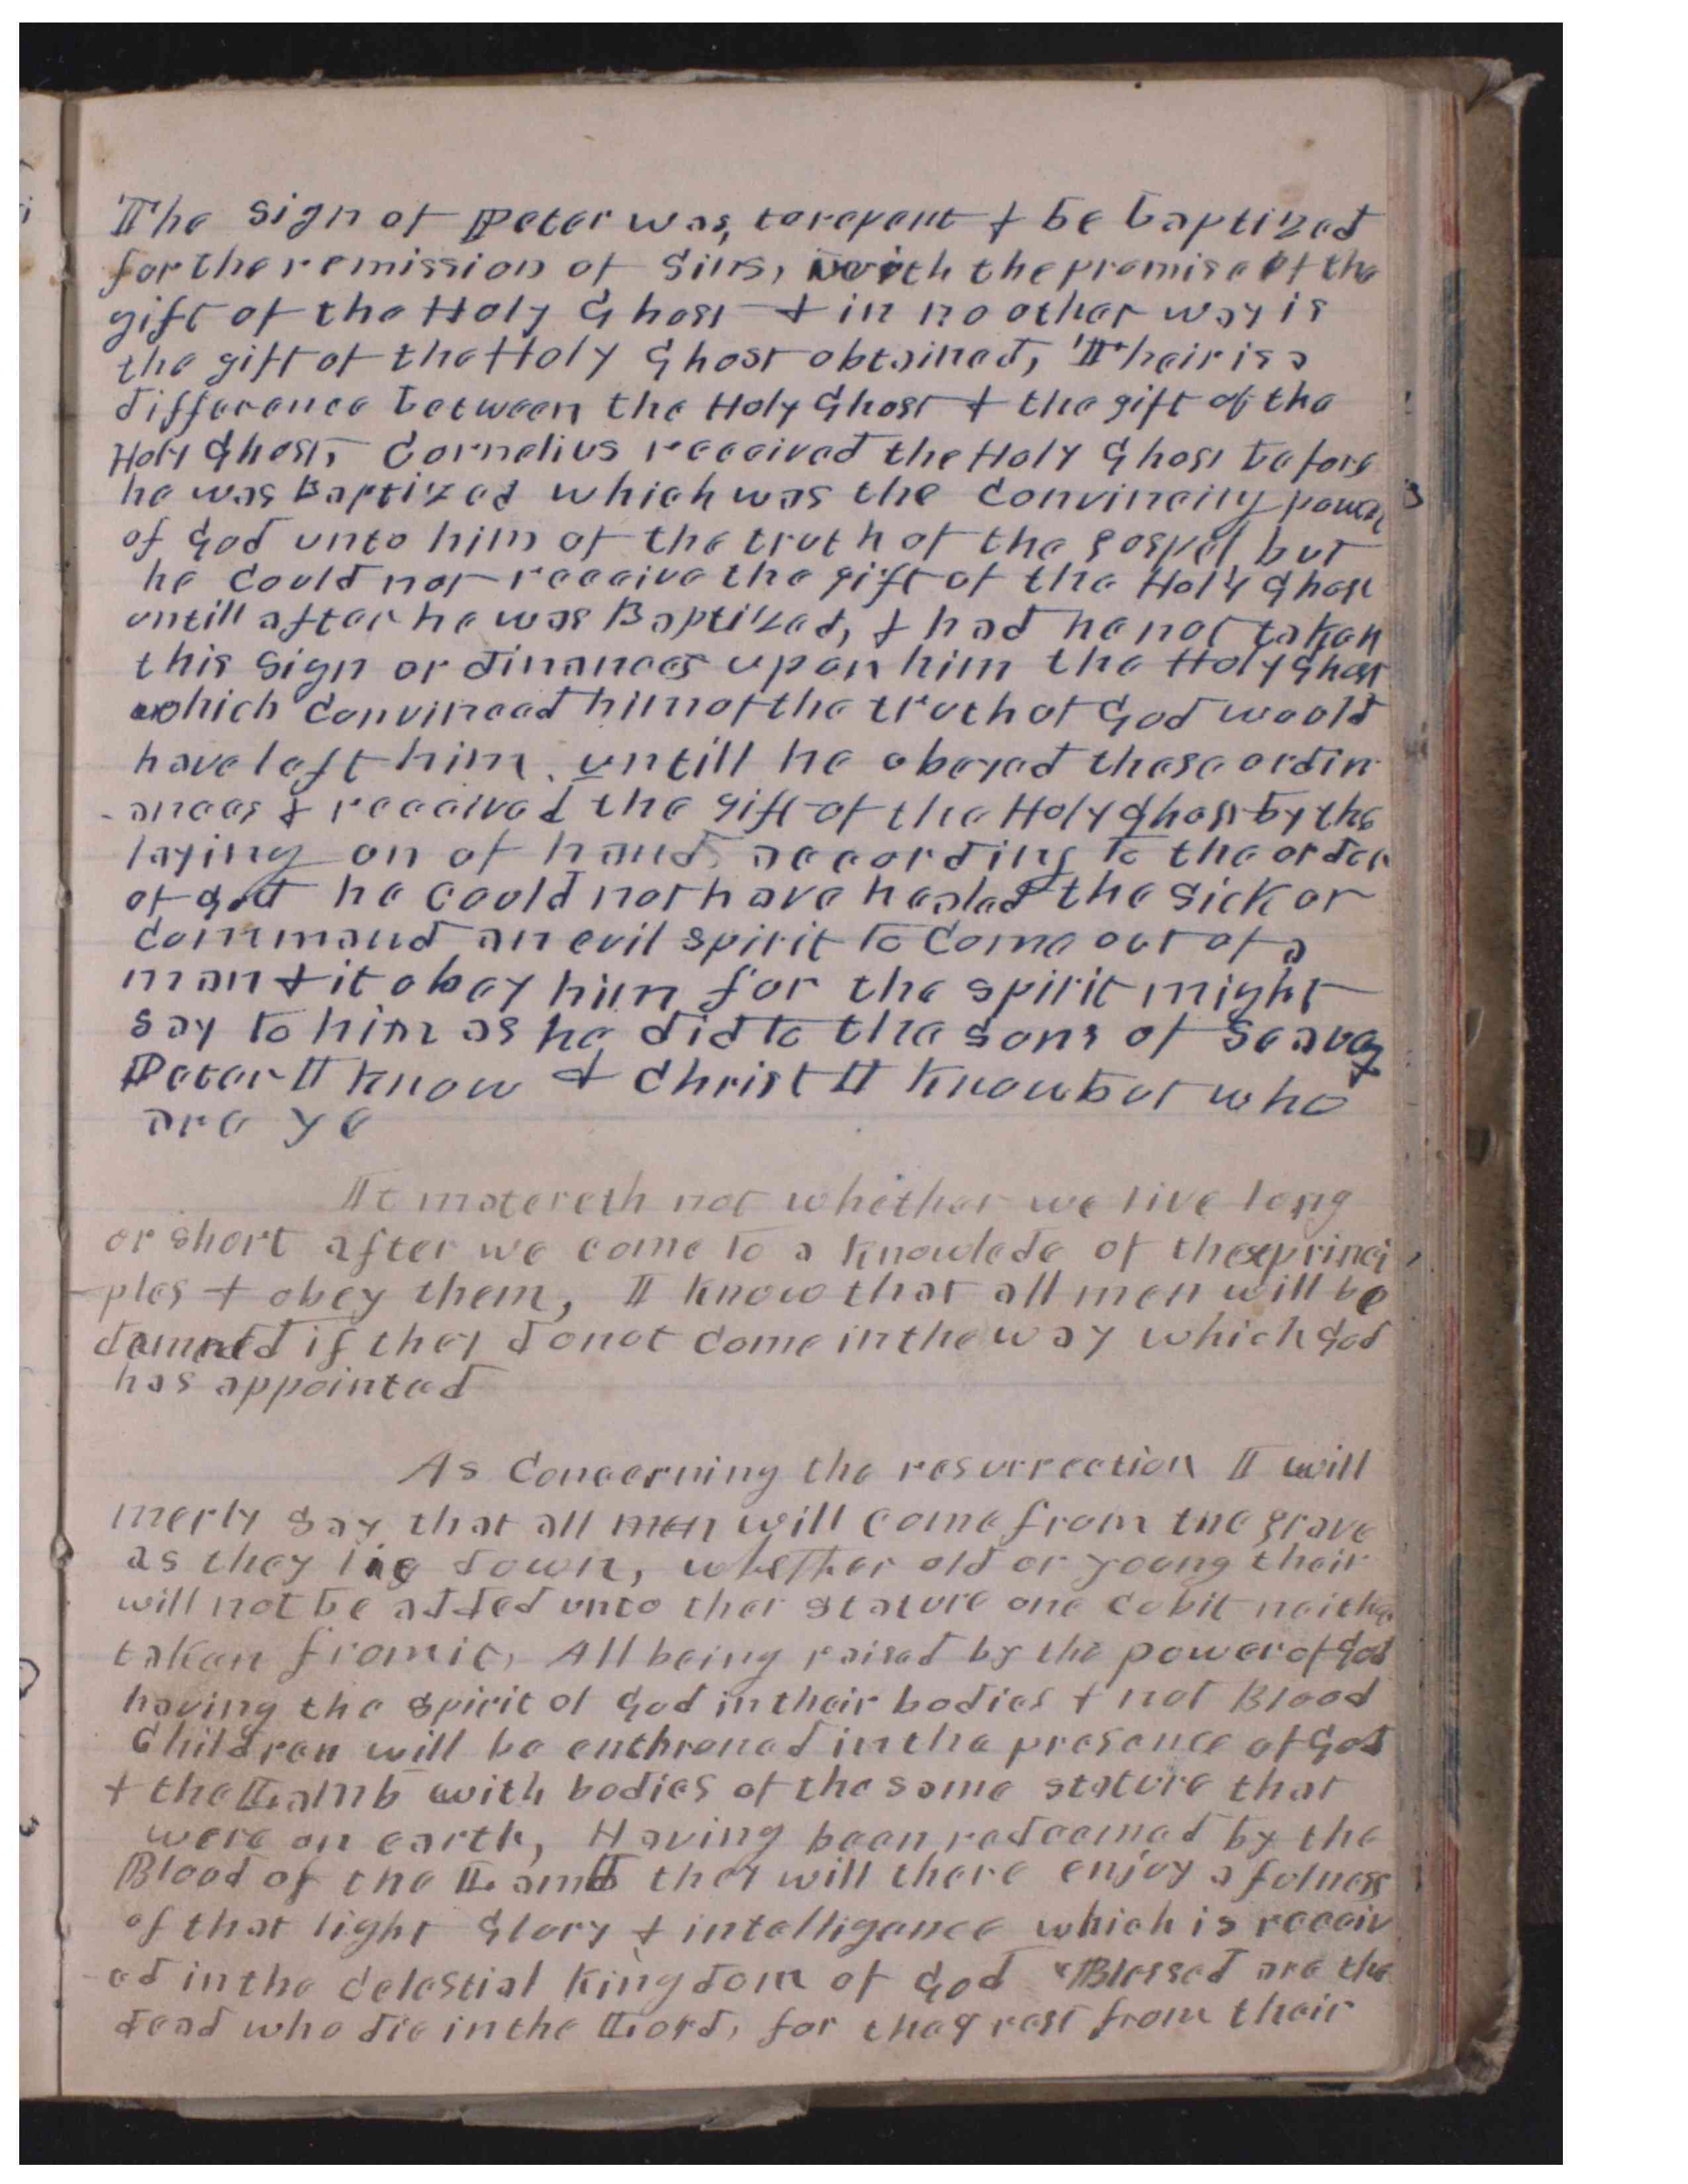 The sign of Peter was, to repent + be baptized
for the remission of Sins, with the promise of the
gift of the Holy Ghost + in no other way is
the gift of the Holy Ghost obtained, Their is a
difference between the Holy Ghost + the gift of the
Holy Ghost, Cornelius received the Holy Ghost before
he was Baptized which was the Convincing power
of God unto him of the truth of the gospel but
he Could not receive the gift of the Holy Ghost
untill after he was Baptized, + had he not taken
this Sign or dinances upon him the Holy Ghost
which Convinced him of the truth of God would
have left him. untill he obeyed these ordin
-ances + received the gift of the Holy Ghost by the
laying on of hands according to the order
of god he Could not have healed the Sick or
Command an evil spirit to Come out of a
man + it obey him for the spirit might
say to him as he did to the sons of Seava
Peter I know + Christ I know but who
are ye
It matereth not whether we live long
or short after we come to a knowlede of these princi
-ples + obey them, I know that all men will be
damned if they do not Come in the way which God
has appointed
As Concerning the resurrection I will
merly Say that all men will come from the grave
as they lie down, whether old or young their
will not be added unto ther stature one Cubit neither
taken from it, All being raised by the power of God
having the spirit of God in their bodies + not Blood
Children will be enthroned in the presence of God
+ the Lamb with bodies of the same stature that
were on earth, Having been redeemed by the
Blood of the Lamb they will there enjoy a fulness
of that light Glory + intelligence which is receiv
-ed in the Celestial kingdom of God "Blessed are the
dead who die in the Lord, for they rest from their